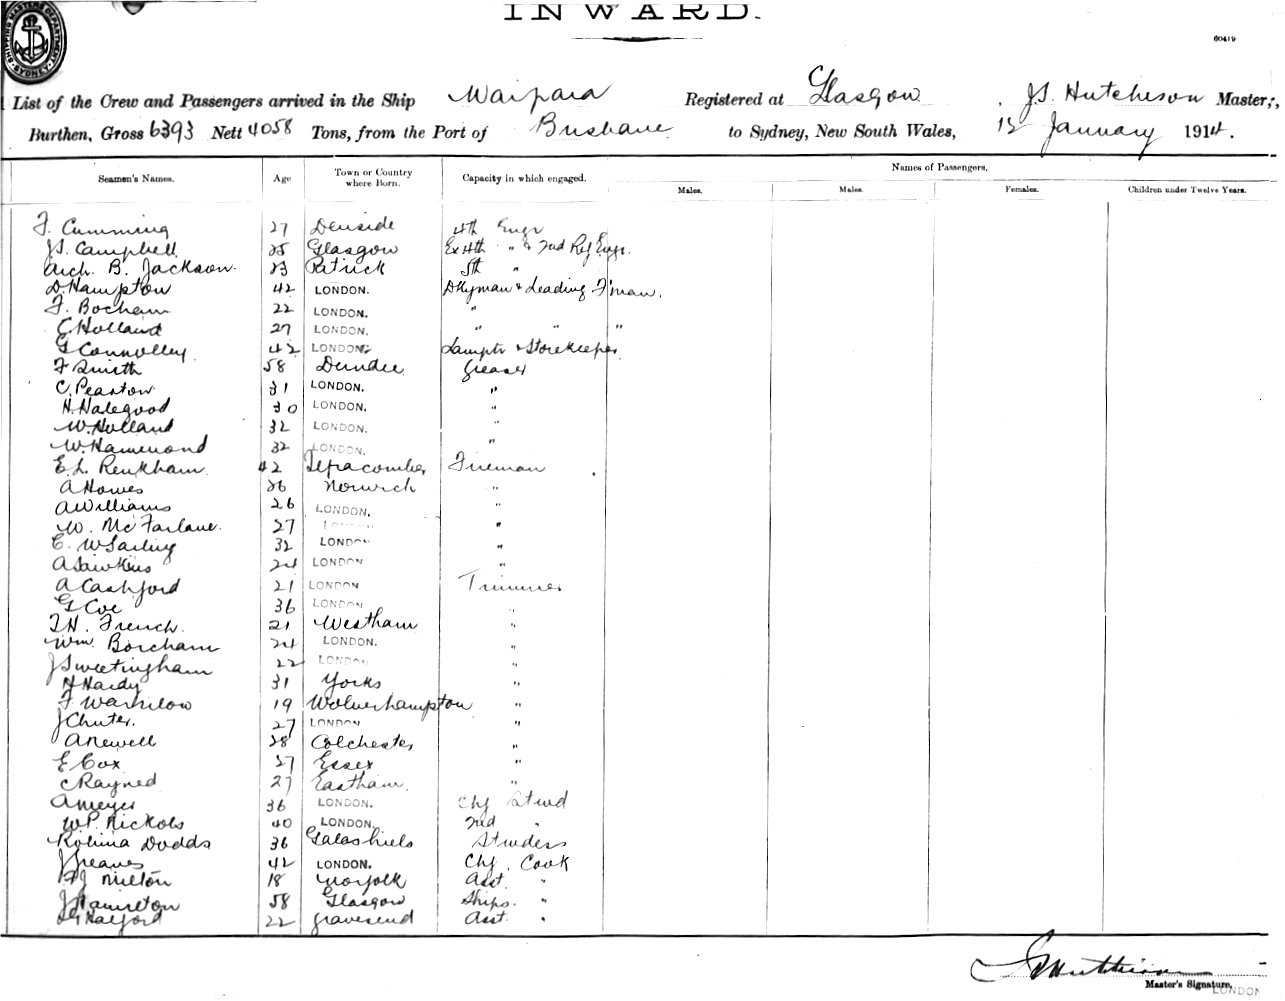 SHIPPING MASTERS DEPARTMENT SYDNEY
INWARD.
60419
List of the Crew and Passengers arrived in the Ship Waipara Registered at Glasgow, J.S. Hutcheson Master;,
Burthen, Gross 6393 Nett 4058 Tons, from the Port of Brisbane to Sydney, New South Wales, 12 January 1914.
Seamen's Names. Age Town or Country where Born. Capacity in which engaged. Names of Passengers.
Males. Males. Females. Children under Twelve Years.
F. Cumming 27 4th Engr
J.S. Campbell 25 Glasgow Ex 4th " & 2nd Ref Engr.
Arch. B. Jackson. 23 Patrick 5th "
D. Hampton 42 LONDON. Dkyman & Leading F'man.
F. Bocham 22 LONDON. "
C Holland 27 LONDON. " " "
G Connolley 42 LONDON. Lamptr & Storekeeper
F Smith 58 Dundee Greaser
C. Pearton 31 LONDON. "
H. Halegood 30 LONDON. "
W. Holland 32 LONDON. "
W. Hammond 32 LONDON. "
E. L. Renkham 42 Fireman
A Howes 26 Norwich "
A Williams 26 LONDON. "
W. McFarlane. 27 LONDON "
E. W Sarling 32 LONDON "
A Sawkins 24 LONDON "
A Cashford 21 LONDON Trimmer
G Coe 36 LONDON "
T.H. French. 21 Westham "
Wm. Borcham 24 LONDON. "
J Sweetingham 22 LONDON "
H Hardy 31 Yorks "
F Warhilow 19 Wolverhampton "
J Chuter. 27 LONDON "
A Newell 28 Colchester "
E Cox 27 Essex "
C Rayned 27 Eastham. "
A Meyer 36 LONDON. Chf Stwd
W.P. Nickols 40 LONDON. 2nd "
Robina Dodds 36 Galashiels Stwdess
J Greaves 42 LONDON. Chf. Cook
F J Milton 18 Norfolk Asst. "
J Hamilton 58 Glasgow Ships. "
Halford 22 Gravesend Asst. "
J S Hutcheson
Master's Signature.
LONDON